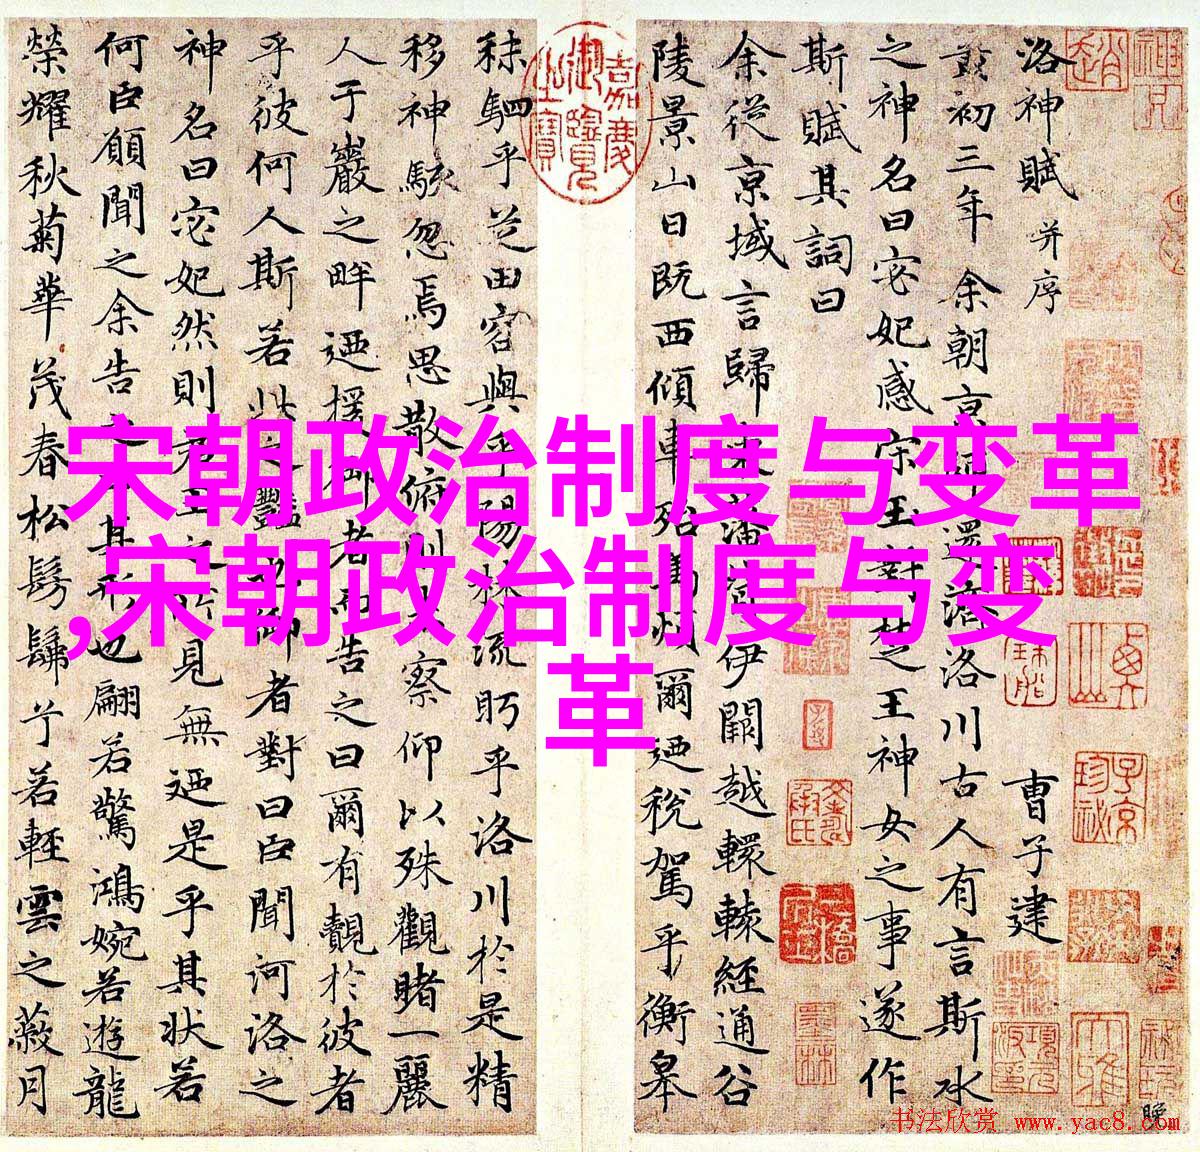 洛神賦 并序
曹子建
黄初三年余朝京師還濟洛川古人有言斯水
之神名曰宓妃感宋玉對楚王神女之事遂作
斯賦其詞曰
余從京域言歸東藩背伊闕越轘轅經通谷
陵景山日既西傾車殆馬煩爾迺稅駕乎蘅皋
秣駟乎芝田容與乎陽林流眄乎洛川於是精
移神駭忽焉思散俯則未察仰以殊觀睹一麗
人于巖之畔迺援御者而告之曰爾有覿於彼者
乎彼何人斯若此之豔也御者對曰臣聞河洛之
神名曰宓妃然則君王之所見無迺是乎其狀若
何臣願聞之余告之其形也翩若驚鴻婉若遊龍
榮耀秋菊華茂春松髣髴兮若輕雲之蔽月
嘉慶御覽之寶
宋朝政治制度与变革
,宋朝政治制度与变
革
书法欣赏 www.yac8.com